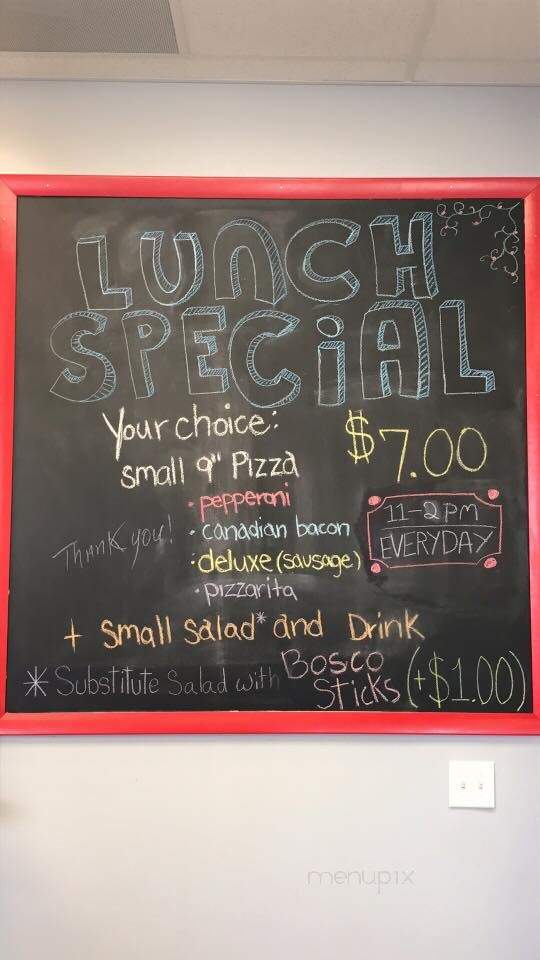 LUNCH
SPECiAL
Your choice:
small 9" Pizza
$7.00
• pepperoni
• canadian bacon
• deluxe (sausage)
• pizzarita
Thank you!
11-2 PM
EVERYDAY
+ Small Salad* and Drink
* Substitute Salad with Bosco Sticks (+$1.00)
menupix